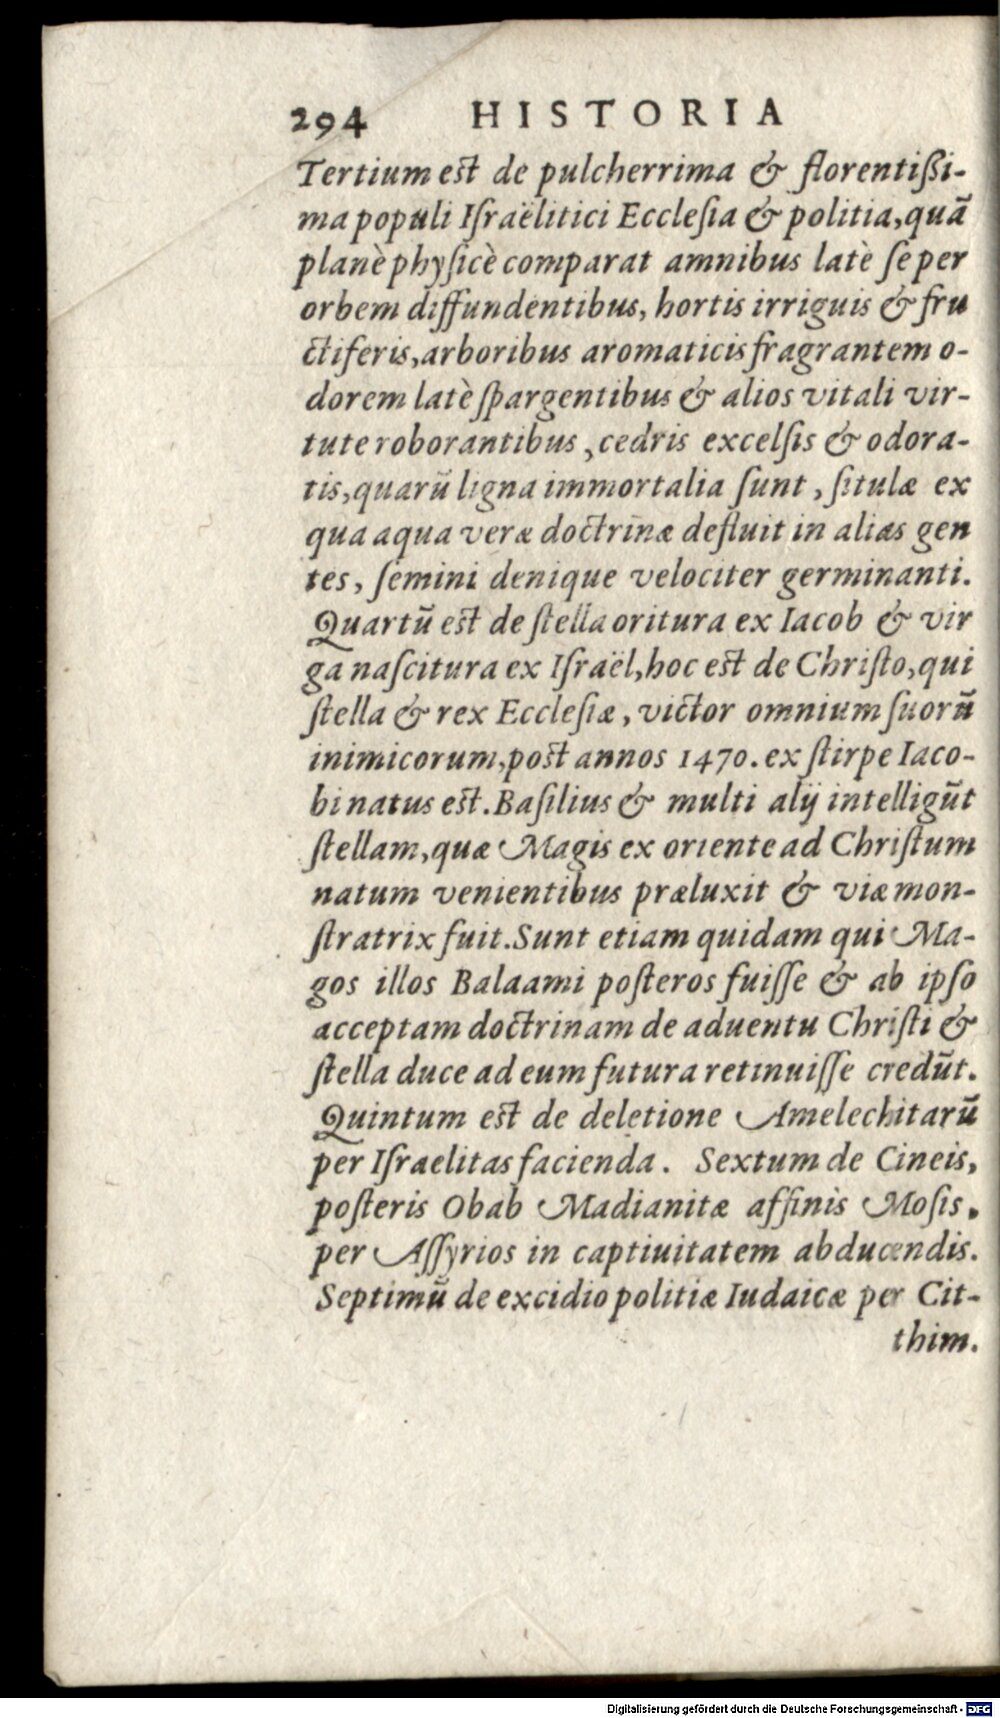 294 HISTORIA
Tertium est de pulcherrima & florentißi-
ma populi Iſraëlitici Eccleſia & politia, quã
planè phyſicè comparat amnibus latè ſe per
orbem diffundentibus, hortis irriguis & fru
ctiferis, arboribus aromaticis fragrantem o-
dorem latè ſpargentibus & alios vitali vir-
tute roborantibus, cedris excelſis & odora-
tis, quarũ ligna immortalia ſunt, ſitulæ ex
qua aqua veræ doctrinæ defluit in alias gen
tes, ſemini denique velociter germinanti.
Quartũ est de ſtella oritura ex Iacob & vir
ga naſcitura ex Iſraël, hoc est de Chriſto, qui
ſtella & rex Eccleſiæ, victor omnium ſuorũ
inimicorum, post annos 1470. ex ſtirpe Iaco-
bi natus est. Baſilius & multi alij intelligũt
ſtellam, quæ Magis ex oriente ad Chriſtum
natum venientibus præluxit & viæ mon-
ſtratrix fuit. Sunt etiam quidam qui Ma-
gos illos Balaami poſteros fuiſſe & ab ipſo
acceptam doctrinam de aduentu Chriſti &
ſtella duce ad eum futura retinuiſſe credũt.
Quintum est de deletione Amelechitarũ
per Iſraelitas facienda. Sextum de Cineis,
poſteris Obab Madianitæ affinis Moſis,
per Aſſyrios in captiuitatem abducendis.
Septimũ de excidio politiæ Iudaicæ per Cit-
thim.
Digitalisierung gefördert durch die Deutsche Forschungsgemeinschaft - DFG